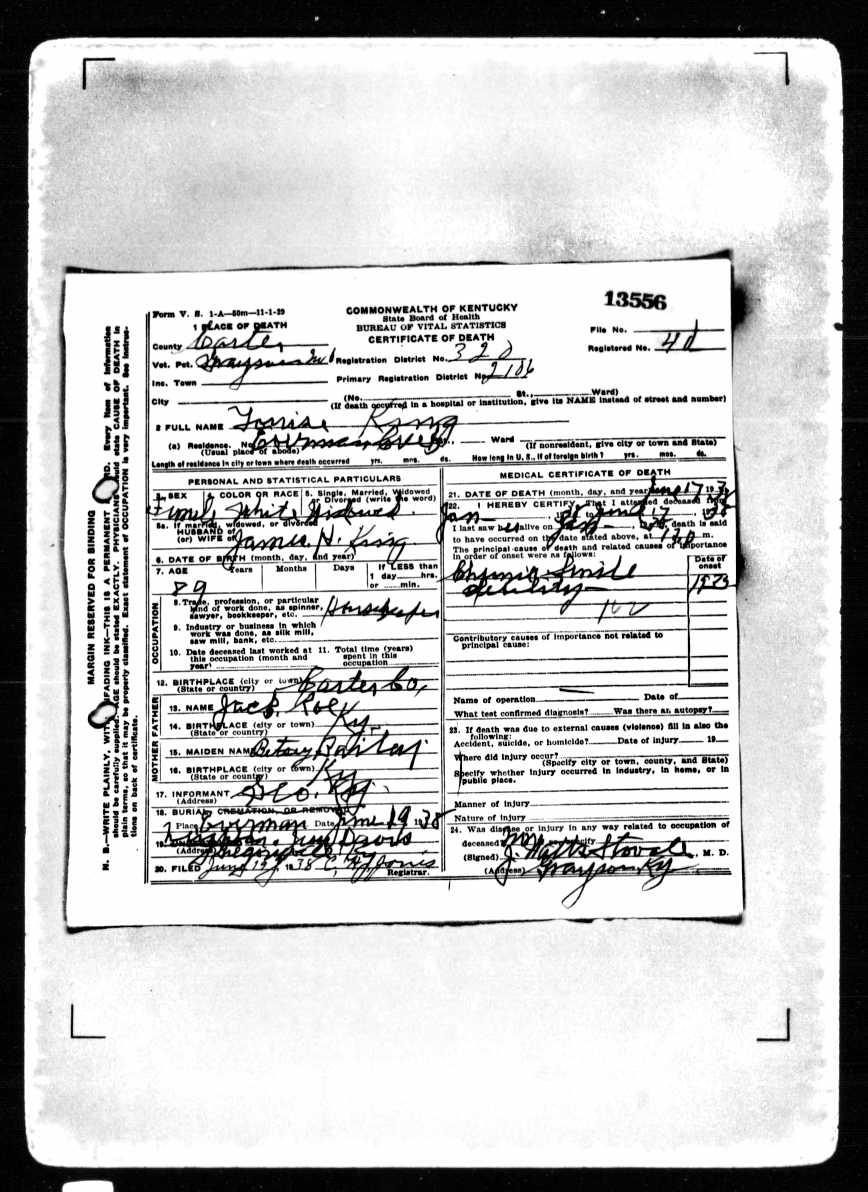 13556
Form V. S. 1-A—50m—11-1-29
COMMONWEALTH OF KENTUCKY
State Board of Health
BUREAU OF VITAL STATISTICS
CERTIFICATE OF DEATH
1 PLACE OF DEATH
County Carter
File No.
Registered No. 40
Vot. Pct. Grayson No 1 Registration District No. 320
Inc. Town Primary Registration District No. 2106
City (No. St., Ward)
(If death occurred in a hospital or institution, give its NAME instead of street and number)
2 FULL NAME King
(a) Residence. No. St., Ward
(Usual place of abode) (If nonresident, give city or town and State)
Length of residence in city or town where death occurred yrs. mos. ds. How long in U. S., if of foreign birth? yrs. mos. ds.
PERSONAL AND STATISTICAL PARTICULARS
3. SEX 4. COLOR OR RACE 5. Single, Married, Widowed or Divorced (write the word)
Female White Widowed
5a. If married, widowed, or divorced
HUSBAND of
(or) WIFE of James H. King
6. DATE OF BIRTH (month, day, and year)
7. AGE Years Months Days If LESS than 1 day hrs. or min.
89
OCCUPATION
8. Trade, profession, or particular kind of work done, as spinner, sawyer, bookkeeper, etc. Housekeeper
9. Industry or business in which work was done, as silk mill, saw mill, bank, etc.
10. Date deceased last worked at this occupation (month and year)
11. Total time (years) spent in this occupation
12. BIRTHPLACE (city or town) Carter Co,
(State or country)
FATHER
13. NAME Jack
14. BIRTHPLACE (city or town) Ky
(State or country)
MOTHER
15. MAIDEN NAME
16. BIRTHPLACE (city or town) Ky
(State or country)
17. INFORMANT
(Address)
18. BURIAL, CREMATION, OR REMOVAL
Place Date June 19 1938
19.
(Address)
20. FILED June 19 1938
Registrar.
MEDICAL CERTIFICATE OF DEATH
21. DATE OF DEATH (month, day, and year) June 17 1938
22. I HEREBY CERTIFY, That I attended deceased from
Jan 1938 to June 17 1938
I last saw her alive on Jan death is said
to have occurred on the date stated above, at m.
The principal cause of death and related causes of importance
in order of onset were as follows:
Date of onset
Chronic Senile
debility
162
Contributory causes of importance not related to
principal cause:
Name of operation Date of
What test confirmed diagnosis? Was there an autopsy?
23. If death was due to external causes (violence) fill in also the
following:
Accident, suicide, or homicide? Date of injury 19
Where did injury occur?
(Specify city or town, county, and State)
Specify whether injury occurred in industry, in home, or in
public place.
Manner of injury
Nature of injury
24. Was disease or injury in any way related to occupation of
deceased? No
(Signed) J. Watts Stovall, M. D.
(Address) Grayson Ky
MARGIN RESERVED FOR BINDING
N. B.—WRITE PLAINLY, WITH UNFADING INK—THIS IS A PERMANENT RECORD. Every item of information
should be carefully supplied. AGE should be stated EXACTLY. PHYSICIANS should state CAUSE OF DEATH in
plain terms, so that it may be properly classified. Exact statement of OCCUPATION is very important. See instruc-
tions on back of certificate.